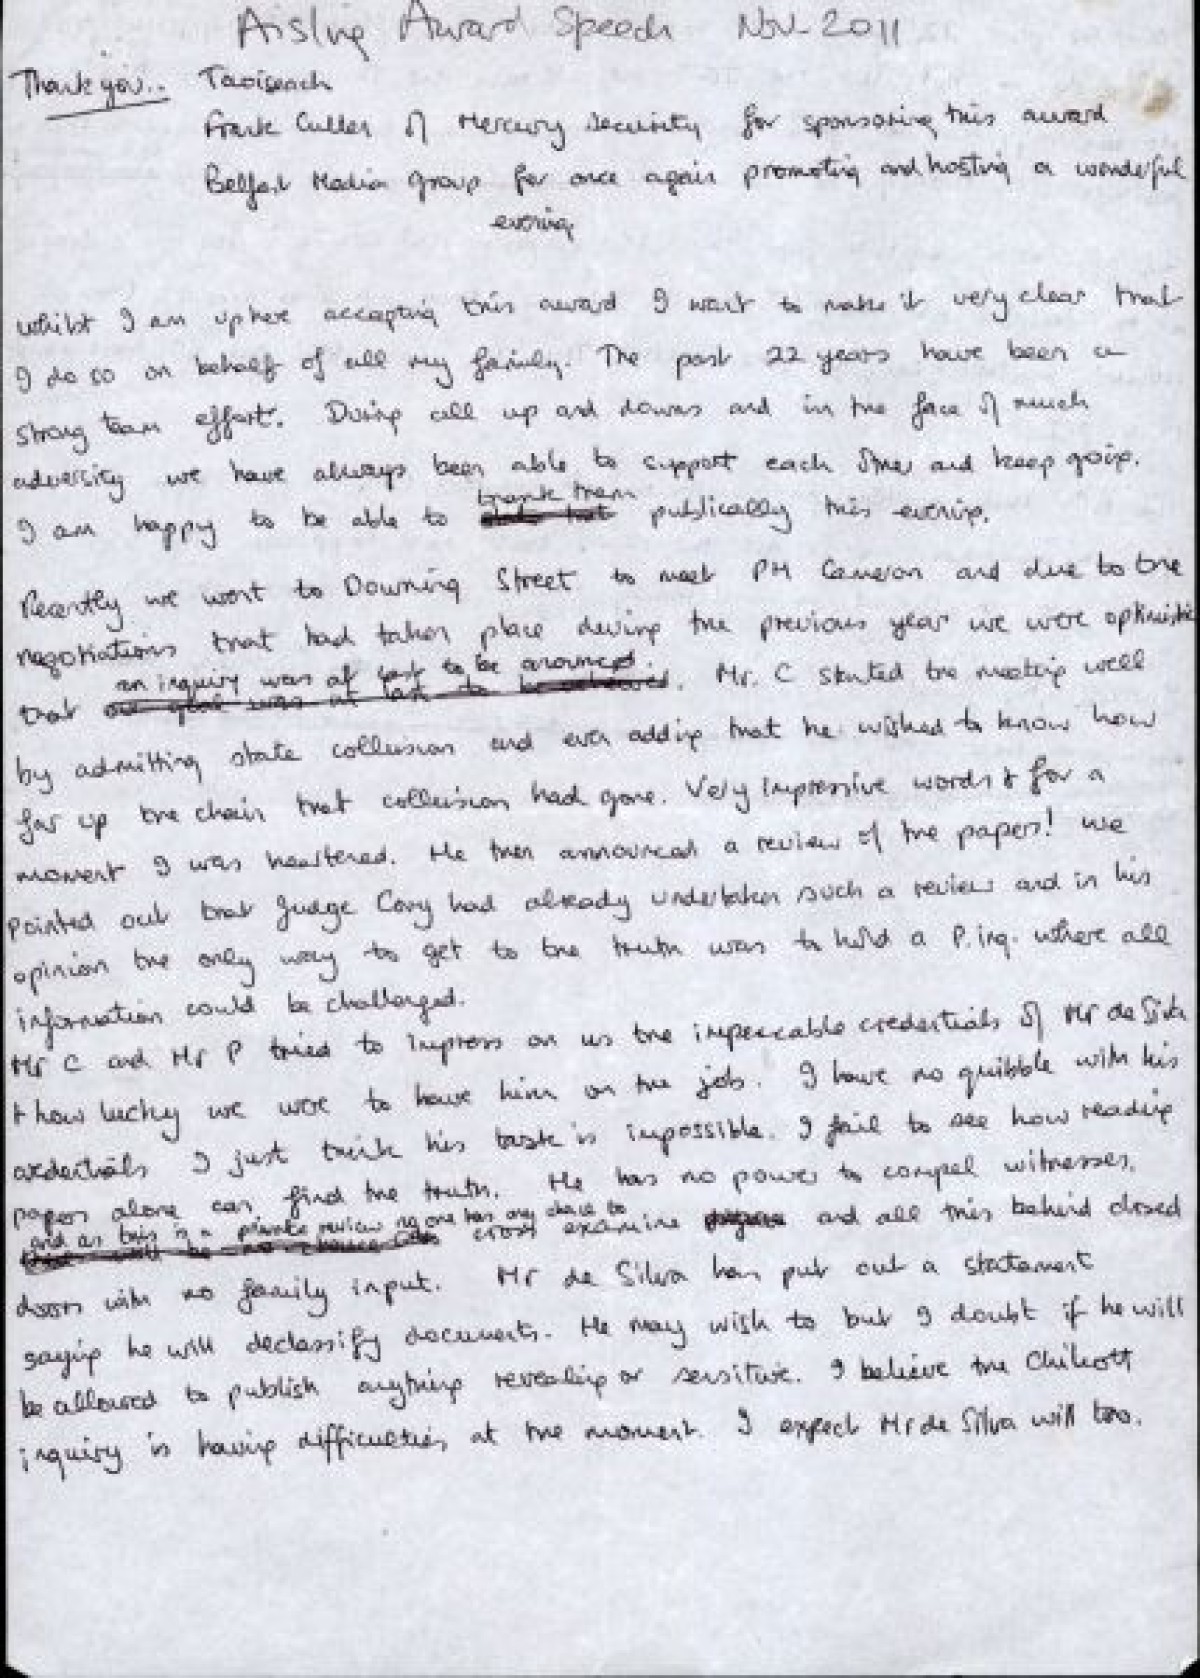 Aisling Award Speech Nov 2011
Thank you.. Taoiseach
Frank Cullen of Mercury Security for sponsoring this award
Belfast Media Group for once again promoting and hosting a wonderful
evening
Whilst I am up here accepting this award I want to make it very clear that
I do so on behalf of all my family. The past 22 years have been a
strong team effort. During all up and downs and in the face of much
adversity we have always been able to support each other and keep going.
thank them
I am happy to be able to publically this evening.
Recently we went to Downing Street to meet PM Cameron and due to the
negotiations that had taken place during the previous year we were optimistic
an inquiry was at last to be announced.
that our goal was at last to be achieved. Mr. C started the meeting well
by admitting state collusion and even adding that he wished to know how
far up the chain that collusion had gone. Very impressive words & for a
moment I was heartened. He then announced a review of the papers! We
pointed out that Judge Cory had already undertaken such a review and in his
opinion the only way to get to the truth was to hold a P. inq. where all
information could be challenged.
Mr C and Mr P tried to impress on us the impeccable credentials of Mr de Silva
& how lucky we were to have him on the job. I have no quibble with his
credentials I just think his task is impossible. I fail to see how reading
papers alone can find the truth. He has no power to compel witnesses.
and as this is a private review no one has any chance to
cross examine and all this behind closed
doors with no family input. Mr de Silva has put out a statement
saying he will declassify documents. He may wish to but I doubt if he will
be allowed to publish anything revealing or sensitive. I believe the Chilcott
inquiry is having difficulties at the moment. I expect Mr de Silva will too.